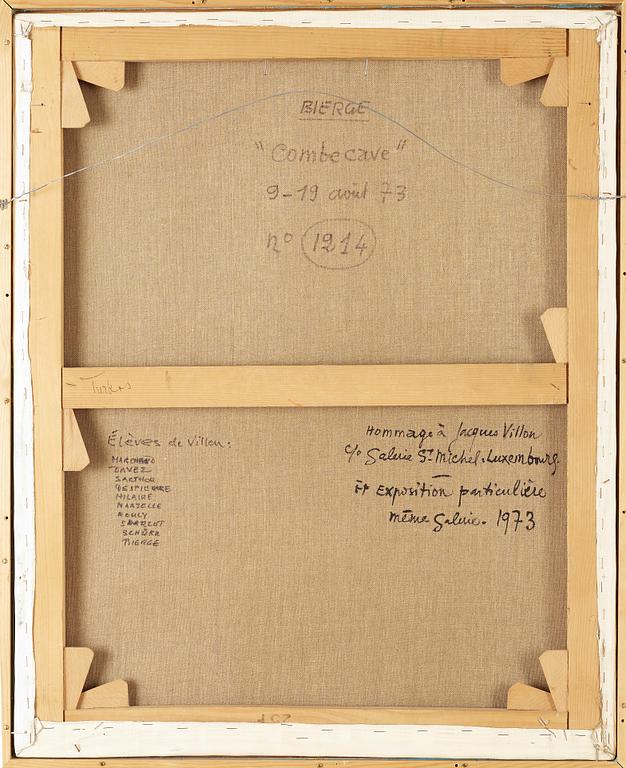 BIERGE
"Combecave"
9-19 août 73
n° 1214
Élèves de Villon:
MARCHAND
DAYEZ
SARTHOU
DESPIERRE
HILAIRE
SCHÜRR
BIERGE
Hommage à Jacques Villon
c/o Galerie St Michel. Luxembourg.
Et Exposition particulière
même Galerie. 1973